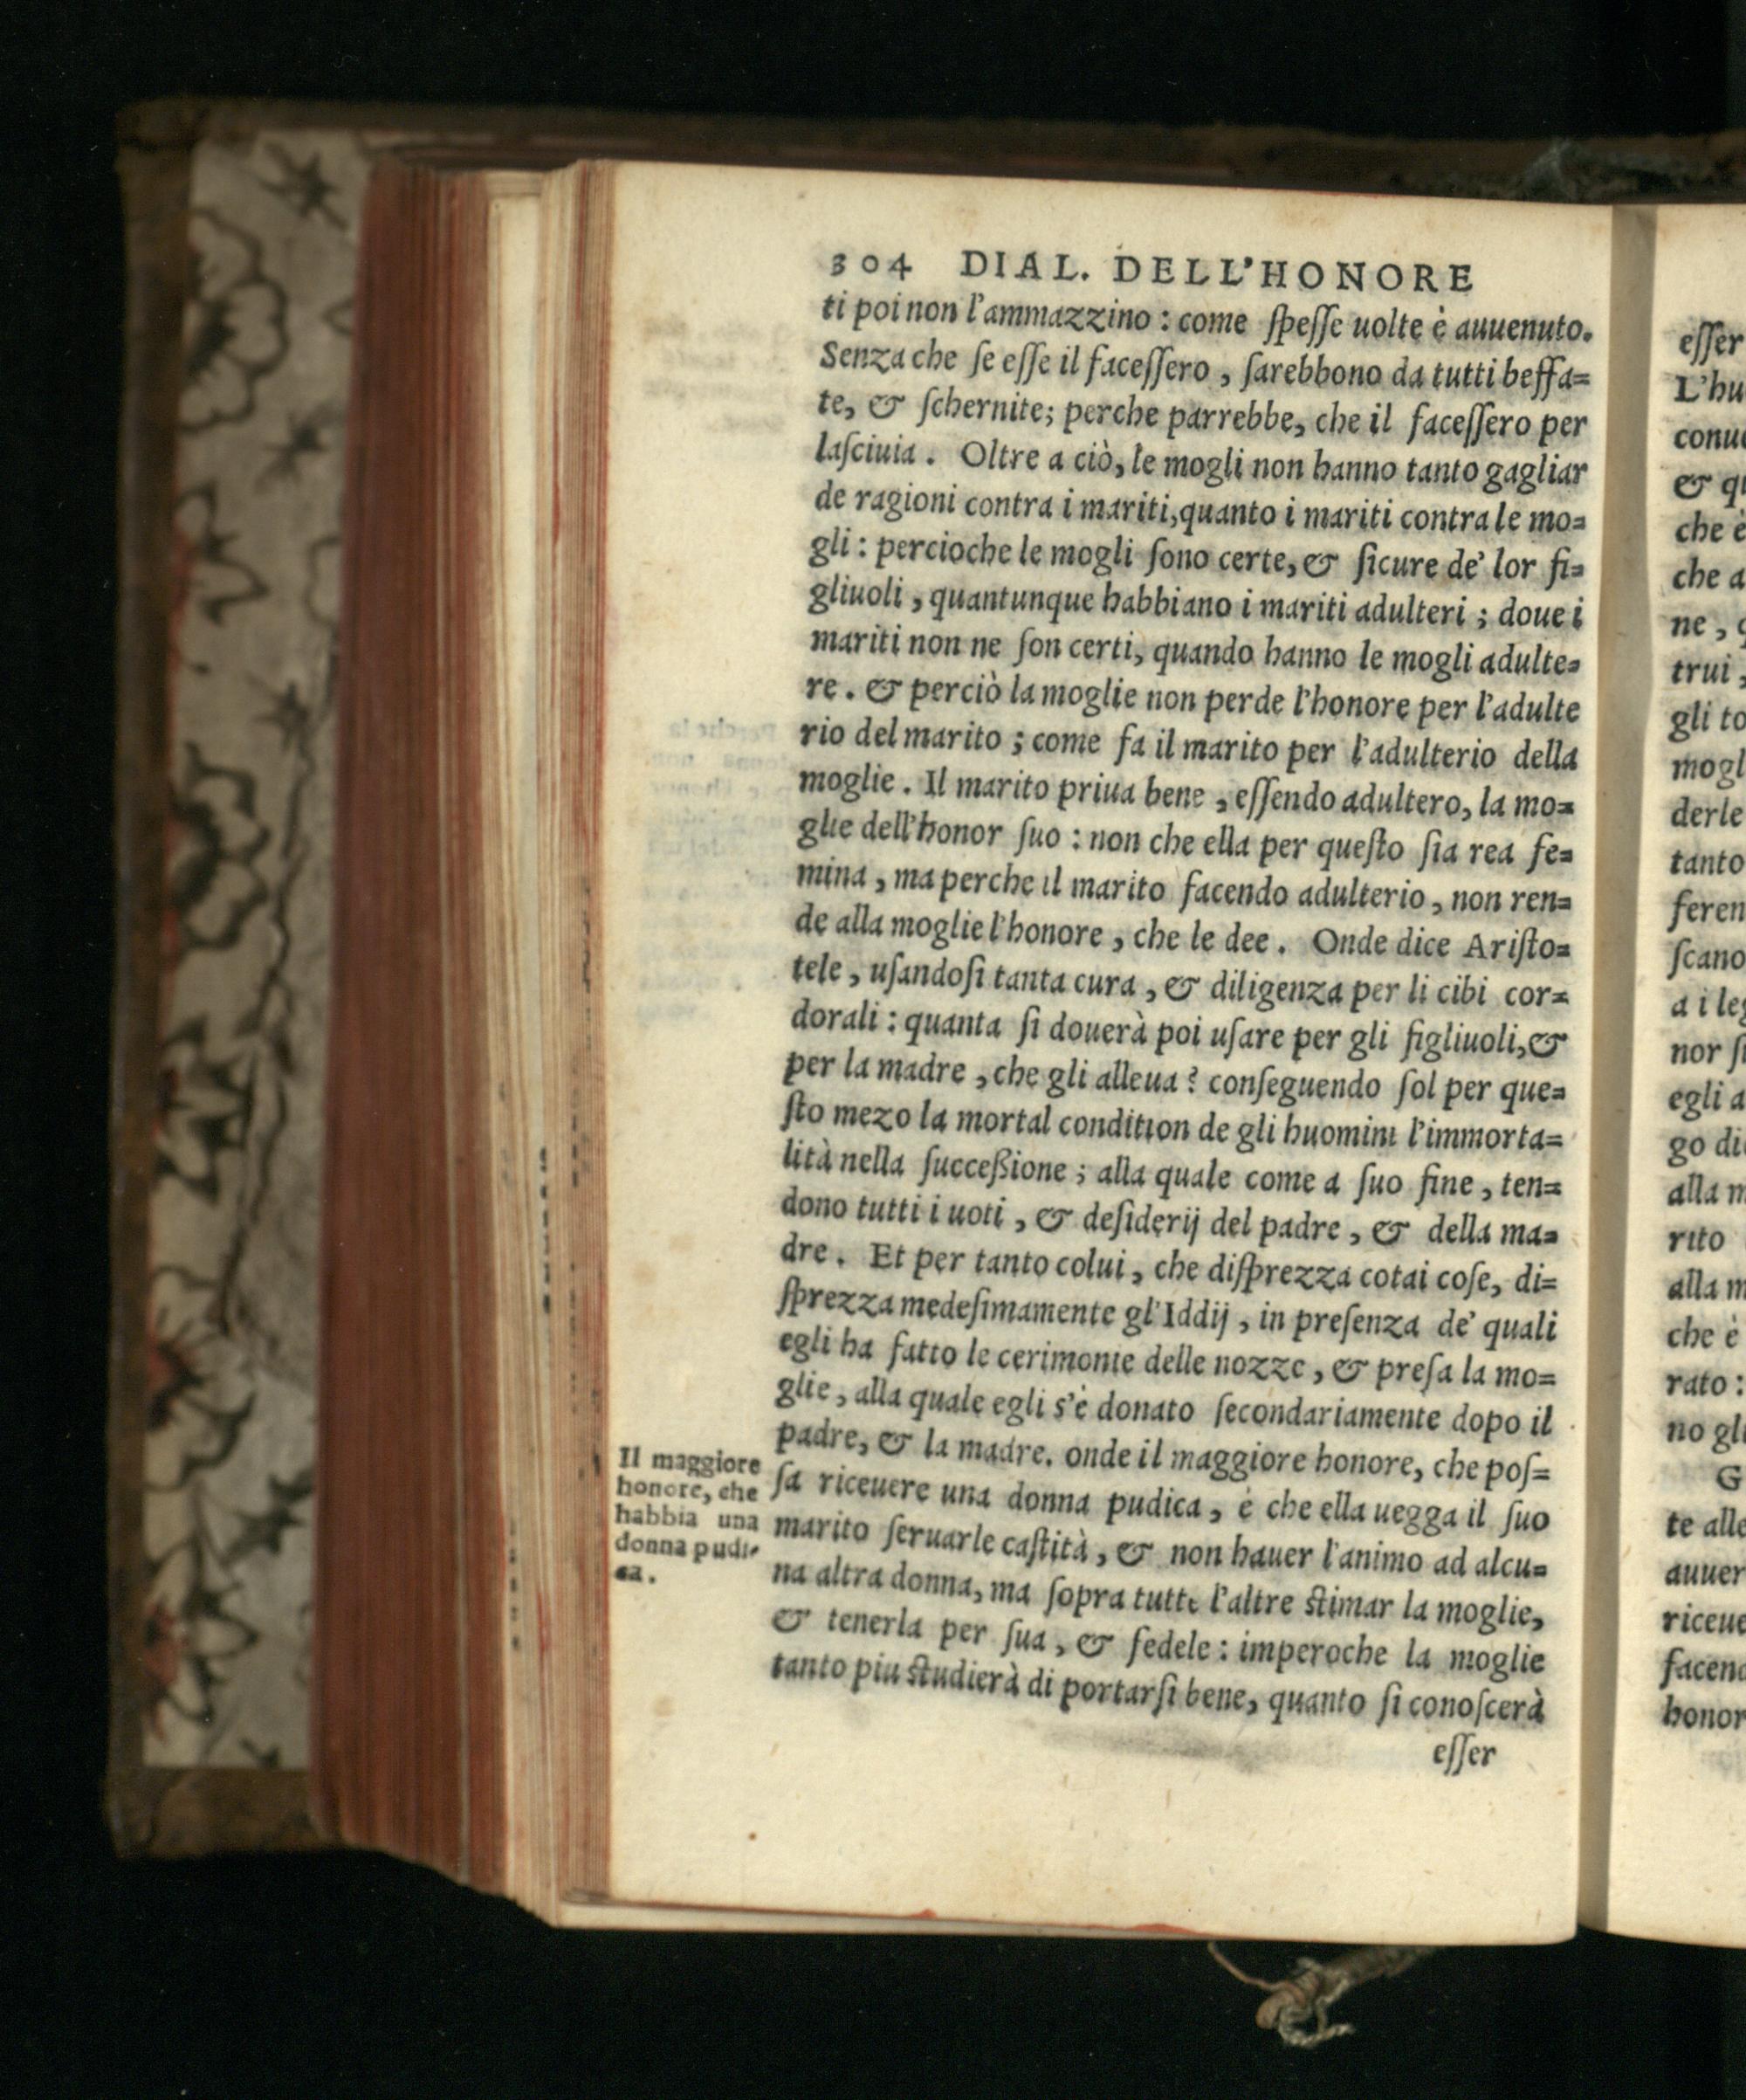 304 DIAL. DELL'HONORE
ti poi non l'ammazzino : come ſpeſſe uolte è auuenuto.
Senza che ſe eſſe il faceſſero , ſarebbono da tutti beffa=
te, & ſchernite; perche parrebbe, che il faceſſero per
laſciuia . Oltre a ciò, le mogli non hanno tanto gagliar
de ragioni contra i mariti,quanto i mariti contra le mo=
gli : percioche le mogli ſono certe, & ſicure de' lor fi=
gliuoli , quantunque habbiano i mariti adulteri ; doue i
mariti non ne ſon certi, quando hanno le mogli adulte=
re . & perciò la moglie non perde l'honore per l'adulte
rio del marito ; come fa il marito per l'adulterio della
moglie . Il marito priua bene , eſſendo adultero, la mo=
glie dell'honor ſuo : non che ella per queſto ſia rea fe=
mina , ma perche il marito facendo adulterio , non ren=
de alla moglie l'honore , che le dee . Onde dice Ariſto=
tele , uſandoſi tanta cura , & diligenza per li cibi cor=
dorali : quanta ſi douerà poi uſare per gli figliuoli,&
per la madre , che gli alleua ? conſeguendo ſol per que=
ſto mezo la mortal condition de gli huomini l'immorta=
lità nella ſucceßione ; alla quale come a ſuo fine , ten=
dono tutti i uoti , & deſiderij del padre , & della ma=
dre . Et per tanto colui , che diſprezza cotai coſe, di=
ſprezza medeſimamente gl'Iddij , in preſenza de' quali
egli ha fatto le cerimonie delle nozze , & preſa la mo=
glie , alla quale egli s'è donato ſecondariamente dopo il
padre, & la madre. onde il maggiore honore, che poſ=
ſa riceuere una donna pudica , è che ella uegga il ſuo
marito ſeruarle caſtità , & non hauer l'animo ad alcu=
na altra donna, ma ſopra tutte l'altre ſtimar la moglie,
& tenerla per ſua , & fedele : imperoche la moglie
tanto piu ſtudierà di portarſi bene, quanto ſi conoſcerà
eſſer
Il maggiore
honore, che
habbia una
donna pudi-
ca .
eſſer
L'hu
conue
& qu
che è
che a
ne ,
trui ,
gli to
mogl
derle
tanto
feren
ſcano
a i leg
nor ſi
egli a
go di
alla m
rito
alla m
che è
rato :
no gli
G
te alle
auuer
riceue
facend
honor